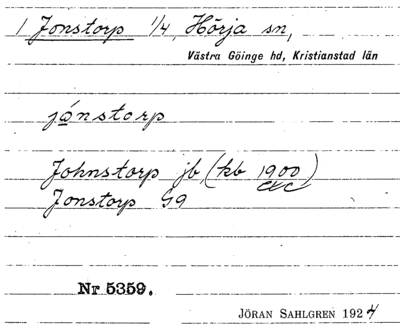 1 Jonstorp 1/4, Hörja sn,
Västra Göinge hd, Kristianstad län
jónstorp
Johnstorp jb, (kb 1900)
Jonstorp G9
Nr 5359.
JÖRAN SAHLGREN 1924